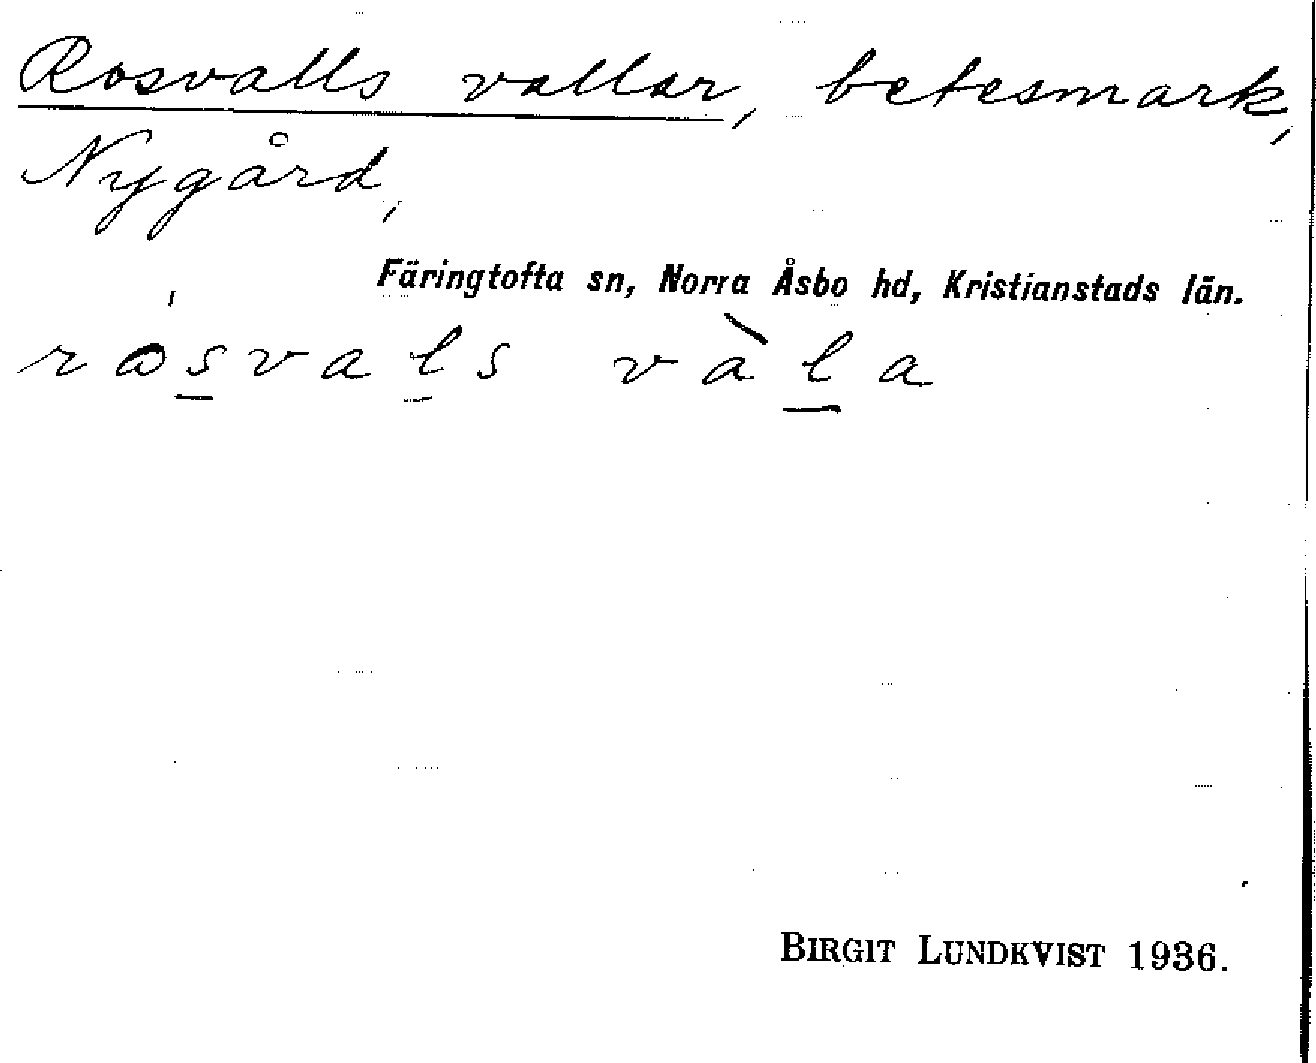 Rosvalls vallar, betesmark,
Nygård,
Färingtofta sn, Norra Åsbo hd, Kristianstads län.
rosvals vàla
BIRGIT LUNDKVIST 1936.